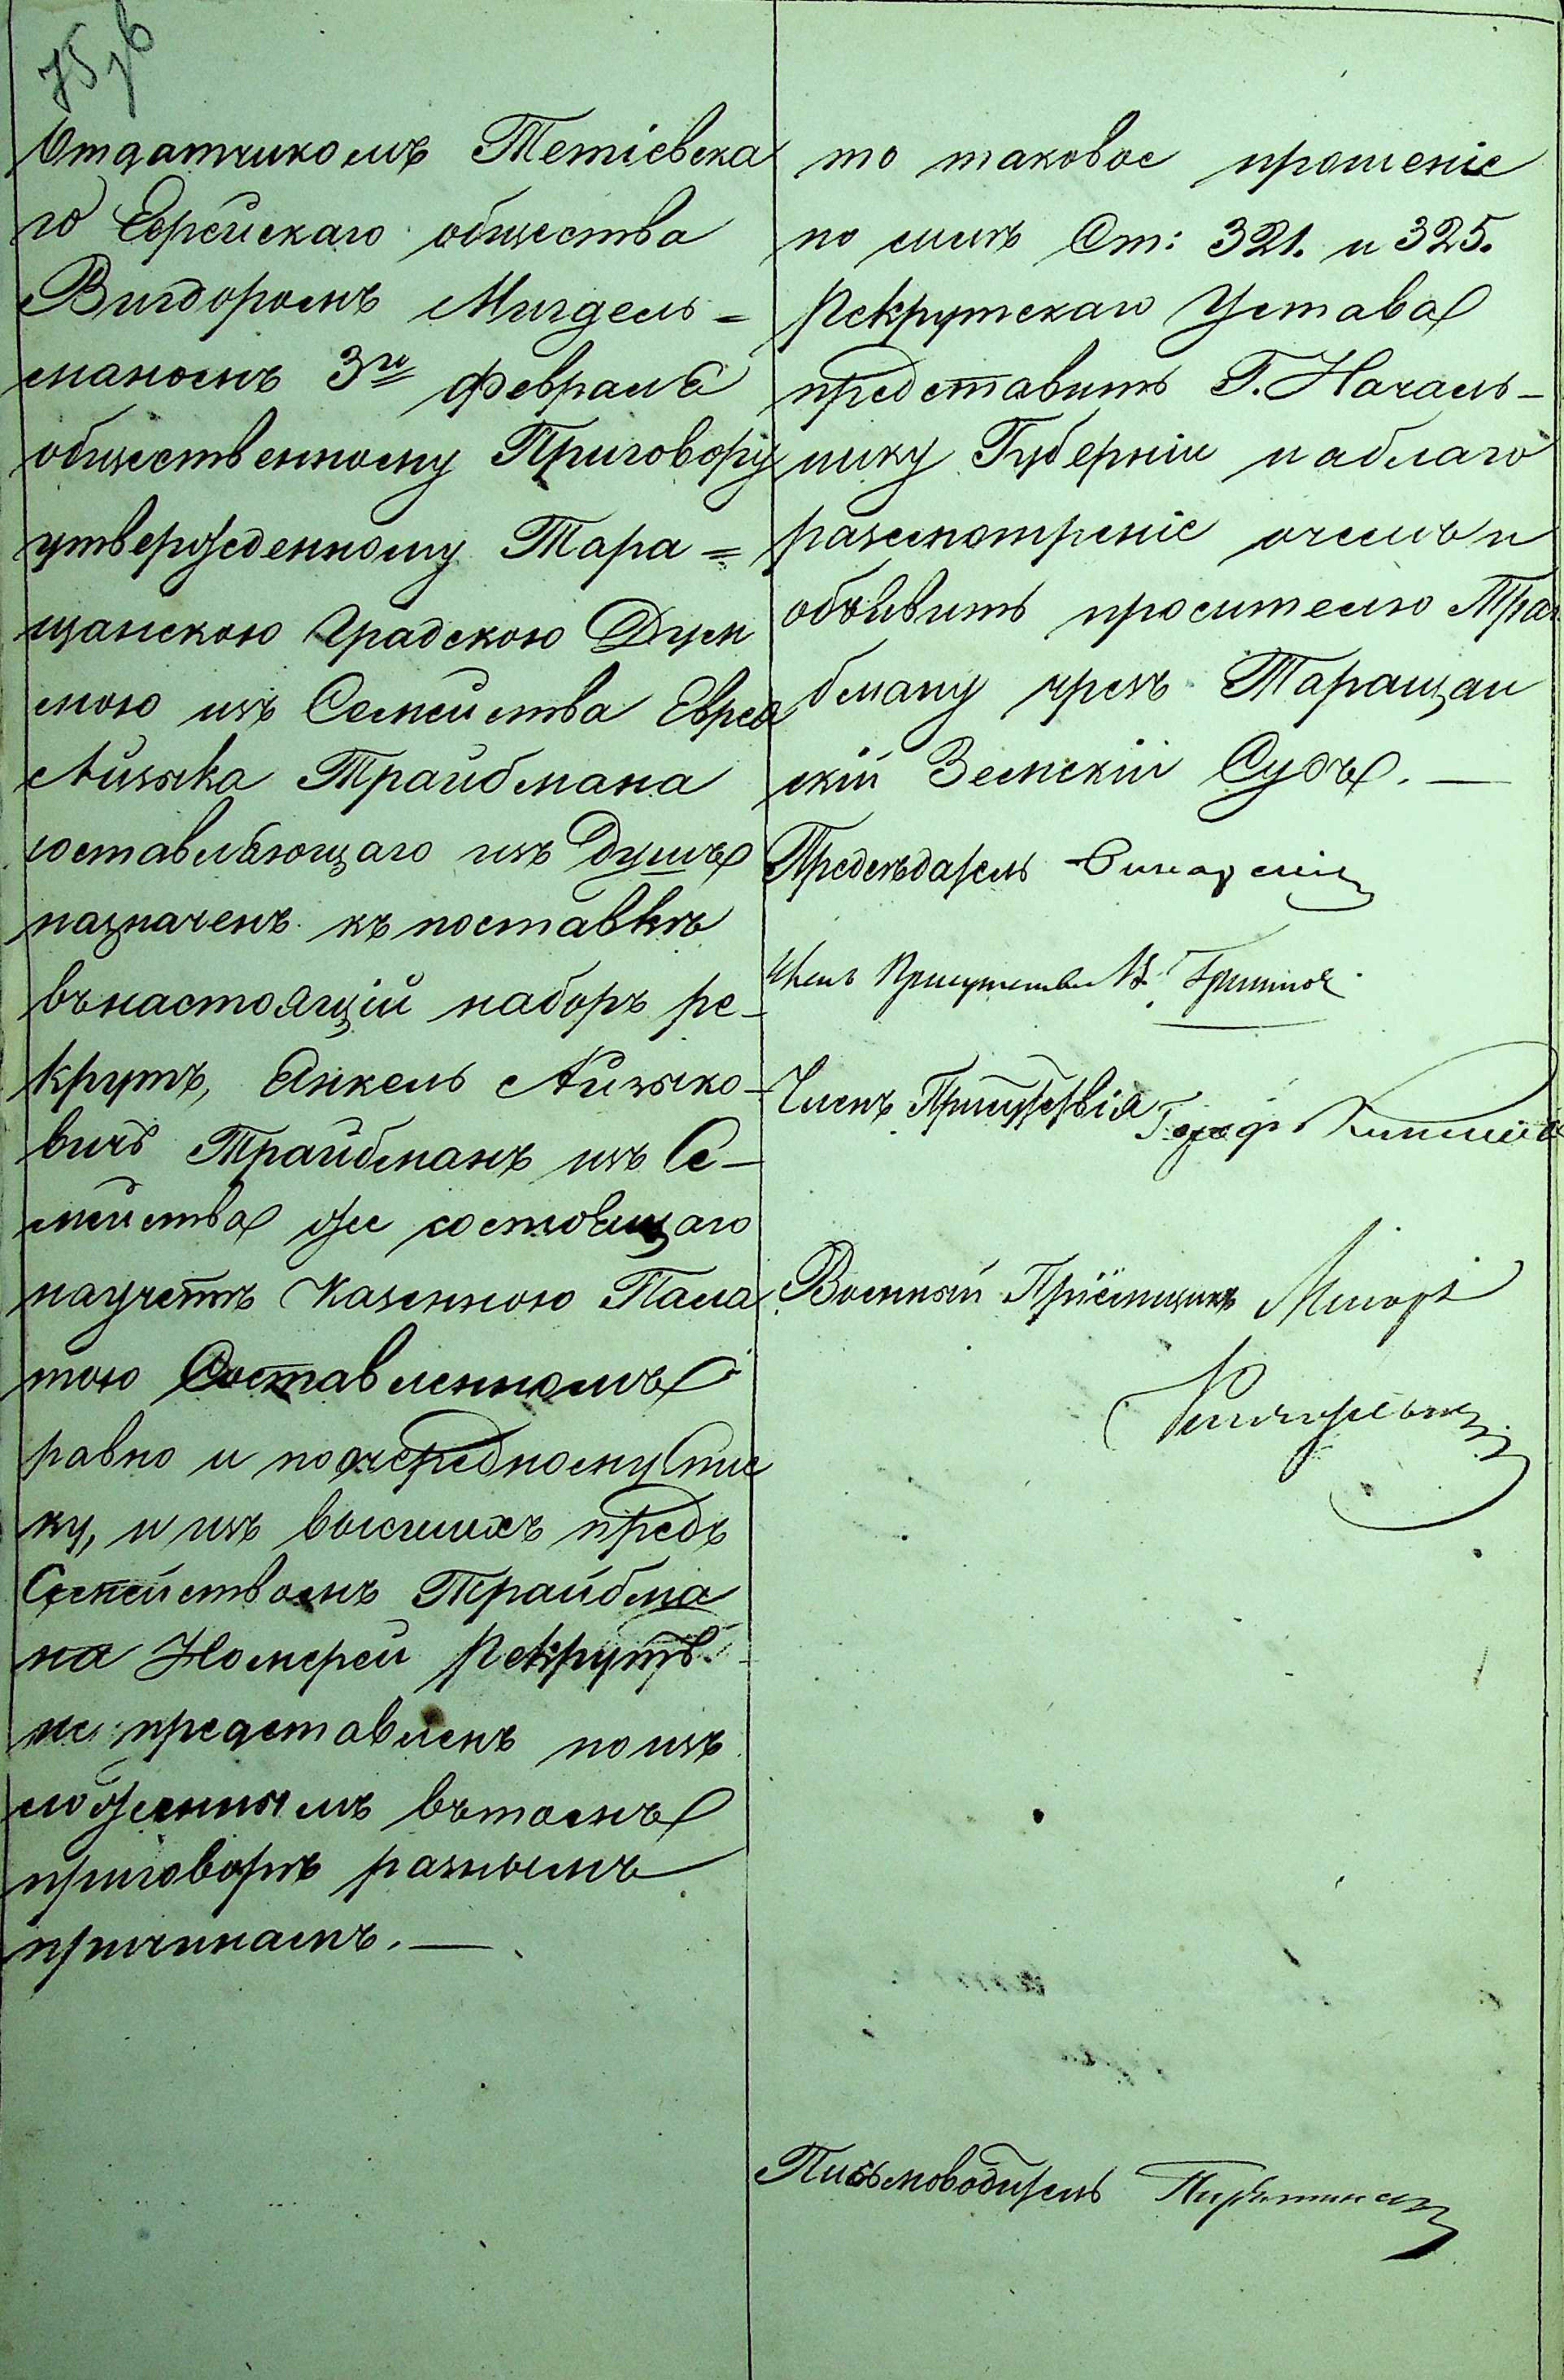 75 об
Отдатчикомъ Тетіевска
го Еврейскаго общества
Вигдоромъ Мигдель=
маномъ 3го Февраля
общественному Приговору
утвержденному Тара=
щанскою Градскою Дум
мою изъ Семейства Еврея
Айзыка Трайбмана
составляющаго изъ душъ
назначенъ къ поставкѣ
въ настоящій наборъ ре-
крутъ, Янкель Айзыко-
вичъ Трайбманъ изъ Се-
мейства же состоящаго
на учетѣ Казенною Пала
тою Составленномъ
равно и по очередному спис
ку, и изъ высшихъ предъ
Семействомъ Трайбма
на Номерей рекрутъ
не представленъ по изъ
ложеннымъ въ томъ
приговорѣ разнымъ
причинамъ. —
то таковое прошеніе
по силѣ Ст: 321. и 325.
Рекрутскаго Устава
представить Г. Началь-
нику Губерніи на благо
разсмотреніе о чемъ и
объявить просителю Трай
бману чрезъ Таращан
скій Земскій Судъ. —
Предсѣдатель
Членъ Присутствія
Членъ Присутствія
Военный Пріёмщикъ Маіоръ
Письмоводитель